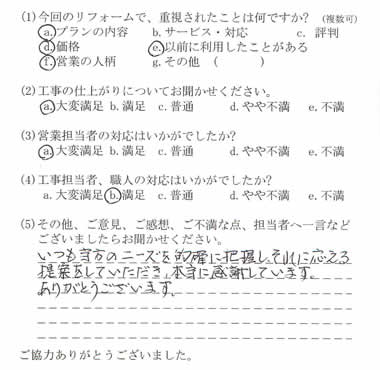 (1)今回のリフォームで、重視されたことは何ですか? (複数可)
a.プランの内容 b.サービス・対応 c. 評判
d.価格 e.以前に利用したことがある
f.営業の人柄 g.その他 ( )
(2)工事の仕上がりについてお聞かせください。
a.大変満足 b.満足 c.普通 d.やや不満 e.不満
(3)営業担当者の対応はいかがでしたか?
a.大変満足 b.満足 c.普通 d.やや不満 e.不満
(4)工事担当者、職人の対応はいかがでしたか?
a.大変満足 b.満足 c.普通 d.やや不満 e.不満
(5)その他、ご意見、ご感想、ご不満な点、担当者へ一言など
ございましたらお聞かせください。
いつも当方のニーズを的確に把握し、それに応える
提案をしていただき、本当に感謝しています。
ありがとうございます。
ご協力ありがとうございました。